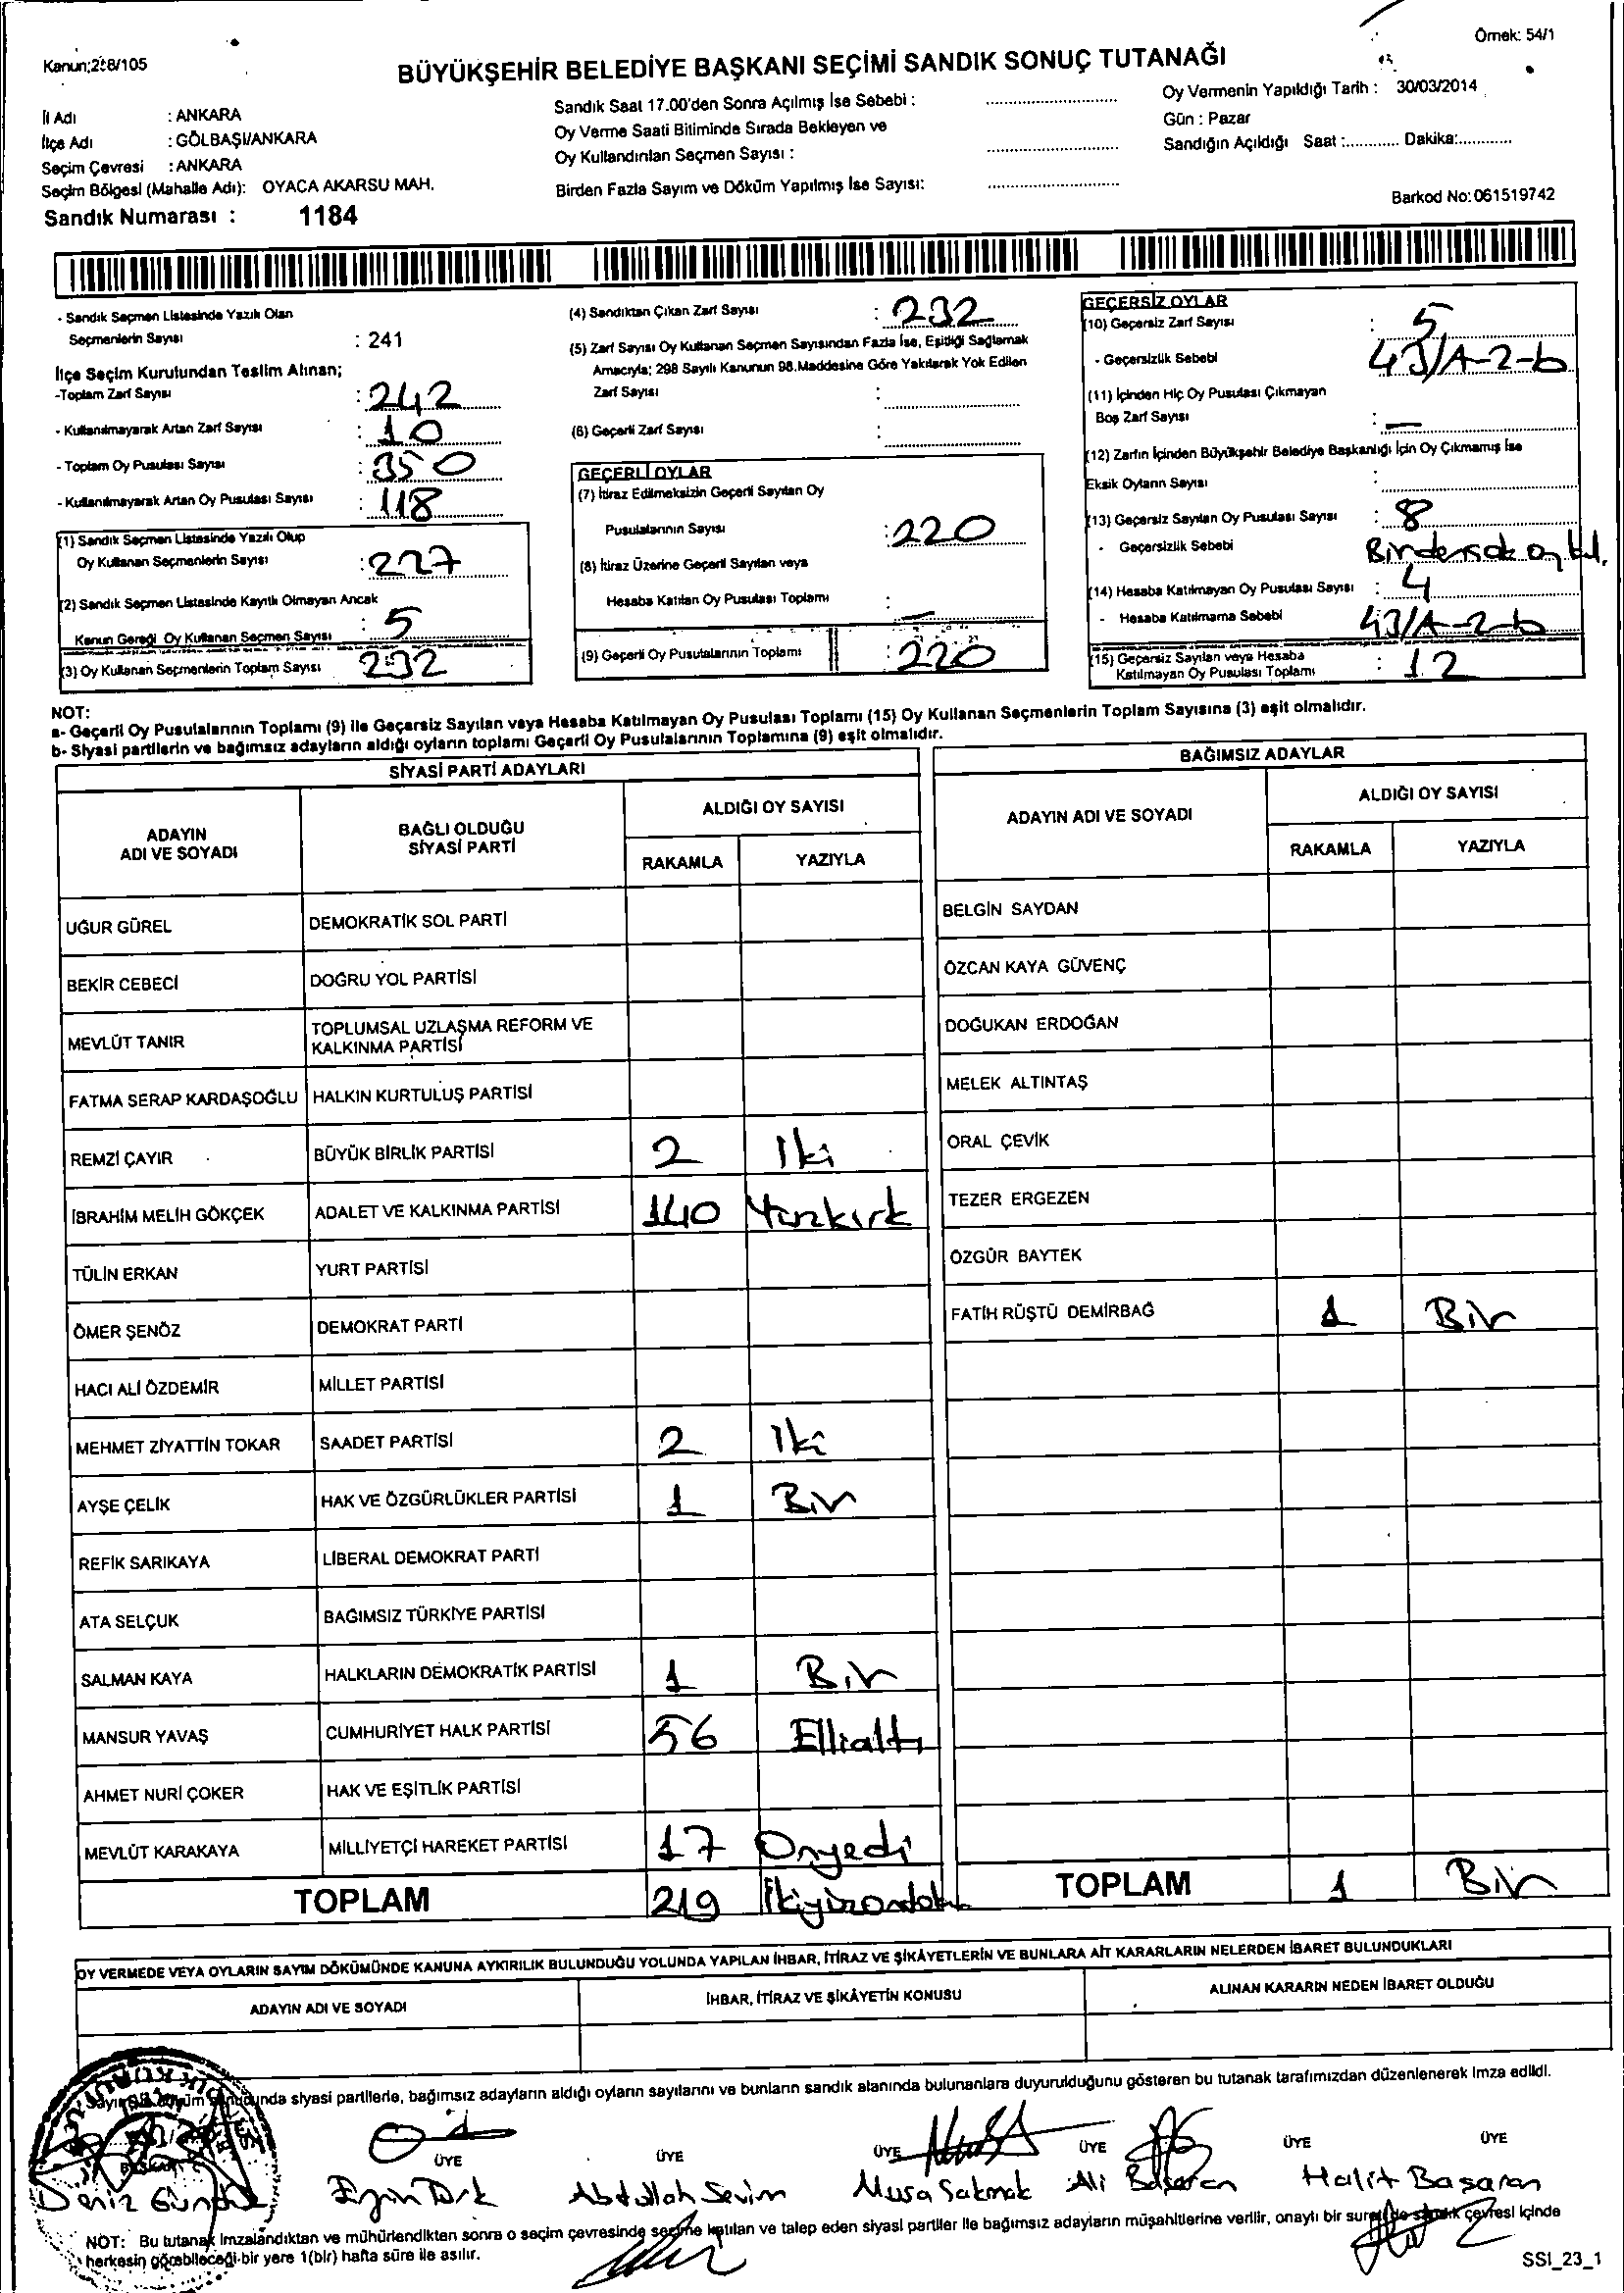 Kanun;298/105
Örnek: 54/1
BÜYÜKŞEHİR BELEDİYE BAŞKANI SEÇİMİ SANDIK SONUÇ TUTANAĞI
İl Adı : ANKARA
İlçe Adı : GÖLBAŞI/ANKARA
Seçim Çevresi : ANKARA
Seçim Bölgesi (Mahalle Adı): OYACA AKARSU MAH.
Sandık Numarası : 1184
Sandık Saat 17.00'den Sonra Açılmış İse Sebebi :
Oy Verme Saati Bitiminde Sırada Bekleyen ve
Oy Kullandırılan Seçmen Sayısı :
Birden Fazla Sayım ve Döküm Yapılmış İse Sayısı:
Oy Vermenin Yapıldığı Tarih : 30/03/2014
Gün : Pazar
Sandığın Açıldığı Saat :............ Dakika:............
Barkod No:061519742
- Sandık Seçmen Listesinde Yazılı Olan
Seçmenlerin Sayısı : 241
İlçe Seçim Kurulundan Teslim Alınan;
-Toplam Zarf Sayısı : 242
- Kullanılmayarak Artan Zarf Sayısı : 10
- Toplam Oy Pusulası Sayısı : 350
- Kullanılmayarak Artan Oy Pusulası Sayısı : 118
(1) Sandık Seçmen Listesinde Yazılı Olup
Oy Kullanan Seçmenlerin Sayısı : 227
(2) Sandık Seçmen Listesinde Kayıtlı Olmayan Ancak
Kanun Gereği Oy Kullanan Seçmen Sayısı : 5
(3) Oy Kullanan Seçmenlerin Toplam Sayısı : 232
(4) Sandıktan Çıkan Zarf Sayısı : 232
(5) Zarf Sayısı Oy Kullanan Seçmen Sayısından Fazla İse, Eşitliği Sağlamak
Amacıyla; 298 Sayılı Kanunun 98.Maddesine Göre Yakılarak Yok Edilen
Zarf Sayısı :
(6) Geçerli Zarf Sayısı :
GEÇERLİ OYLAR
(7) İtiraz Edilmeksizin Geçerli Sayılan Oy
Pusulalarının Sayısı : 220
(8) İtiraz Üzerine Geçerli Sayılan veya
Hesaba Katılan Oy Pusulası Toplamı : —
(9) Geçerli Oy Pusulalarının Toplamı : 220
GEÇERSİZ OYLAR
(10) Geçersiz Zarf Sayısı : 5
- Geçersizlik Sebebi 43/A-2-b
(11) İçinden Hiç Oy Pusulası Çıkmayan
Boş Zarf Sayısı : —
(12) Zarfın İçinden Büyükşehir Belediye Başkanlığı İçin Oy Çıkmamış İse
Eksik Oyların Sayısı :
(13) Geçersiz Sayılan Oy Pusulası Sayısı : 8
- Geçersizlik Sebebi Birden
(14) Hesaba Katılmayan Oy Pusulası Sayısı : 4
- Hesaba Katılmama Sebebi 43/A-2-b
(15) Geçersiz Sayılan veya Hesaba
Katılmayan Oy Pusulası Toplamı : 12
NOT:
a- Geçerli Oy Pusulalarının Toplamı (9) ile Geçersiz Sayılan veya Hesaba Katılmayan Oy Pusulası Toplamı (15) Oy Kullanan Seçmenlerin Toplam Sayısına (3) eşit olmalıdır.
b- Siyasi partilerin ve bağımsız adayların aldığı oyların toplamı Geçerli Oy Pusulalarının Toplamına (9) eşit olmalıdır.
SİYASİ PARTİ ADAYLARI
ADAYIN ADI VE SOYADI BAĞLI OLDUĞU SİYASİ PARTİ ALDIĞI OY SAYISI
RAKAMLA YAZIYLA
UĞUR GÜREL DEMOKRATİK SOL PARTİ
BEKİR CEBECİ DOĞRU YOL PARTİSİ
MEVLÜT TANIR TOPLUMSAL UZLAŞMA REFORM VE KALKINMA PARTİSİ
FATMA SERAP KARDAŞOĞLU HALKIN KURTULUŞ PARTİSİ
REMZİ ÇAYIR BÜYÜK BİRLİK PARTİSİ 2 Iki
İBRAHİM MELİH GÖKÇEK ADALET VE KALKINMA PARTİSİ 140 Yüzkırk
TÜLİN ERKAN YURT PARTİSİ
ÖMER ŞENÖZ DEMOKRAT PARTİ
HACI ALİ ÖZDEMİR MİLLET PARTİSİ
MEHMET ZİYATTİN TOKAR SAADET PARTİSİ 2 Iki
AYŞE ÇELİK HAK VE ÖZGÜRLÜKLER PARTİSİ 1 Bir
REFİK SARIKAYA LİBERAL DEMOKRAT PARTİ
ATA SELÇUK BAĞIMSIZ TÜRKİYE PARTİSİ
SALMAN KAYA HALKLARIN DEMOKRATİK PARTİSİ 1 Bir
MANSUR YAVAŞ CUMHURİYET HALK PARTİSİ 56 Ellialtı
AHMET NURİ ÇOKER HAK VE EŞİTLİK PARTİSİ
MEVLÜT KARAKAYA MİLLİYETÇİ HAREKET PARTİSİ 17 Onyedi
TOPLAM 219 İkiyüzondokuz
BAĞIMSIZ ADAYLAR
ADAYIN ADI VE SOYADI ALDIĞI OY SAYISI
RAKAMLA YAZIYLA
BELGİN SAYDAN
ÖZCAN KAYA GÜVENÇ
DOĞUKAN ERDOĞAN
MELEK ALTINTAŞ
ORAL ÇEVİK
TEZER ERGEZEN
ÖZGÜR BAYTEK
FATİH RÜŞTÜ DEMİRBAĞ 1 Bir
TOPLAM 1 Bir
OY VERMEDE VEYA OYLARIN SAYIM DÖKÜMÜNDE KANUNA AYKIRILIK BULUNDUĞU YOLUNDA YAPILAN İHBAR, İTİRAZ VE ŞİKÂYETLERİN VE BUNLARA AİT KARARLARIN NELERDEN İBARET BULUNDUKLARI
ADAYIN ADI VE SOYADI İHBAR, İTİRAZ VE ŞİKÂYETİN KONUSU ALINAN KARARIN NEDEN İBARET OLDUĞU
siyasi partilerle, bağımsız adayların aldığı oyların sayılarını ve bunların sandık alanında bulunanlara duyurulduğunu gösteren bu tutanak tarafımızdan düzenlenerek imza edildi.
ÜYE ÜYE ÜYE ÜYE ÜYE ÜYE
Deniz Abdullah Sevim Musa Sakmak Ali Başaran Halit Başaran
NOT: Bu tutanak imzalandıktan ve mühürlendikten sonra o seçim çevresinde seçime katılan ve talep eden siyasi partiler ile bağımsız adayların müşahitlerine verilir, onaylı bir sureti de sandık çevresi içinde
herkesin görebileceği bir yere 1(bir) hafta süre ile asılır.
SSI_23_1